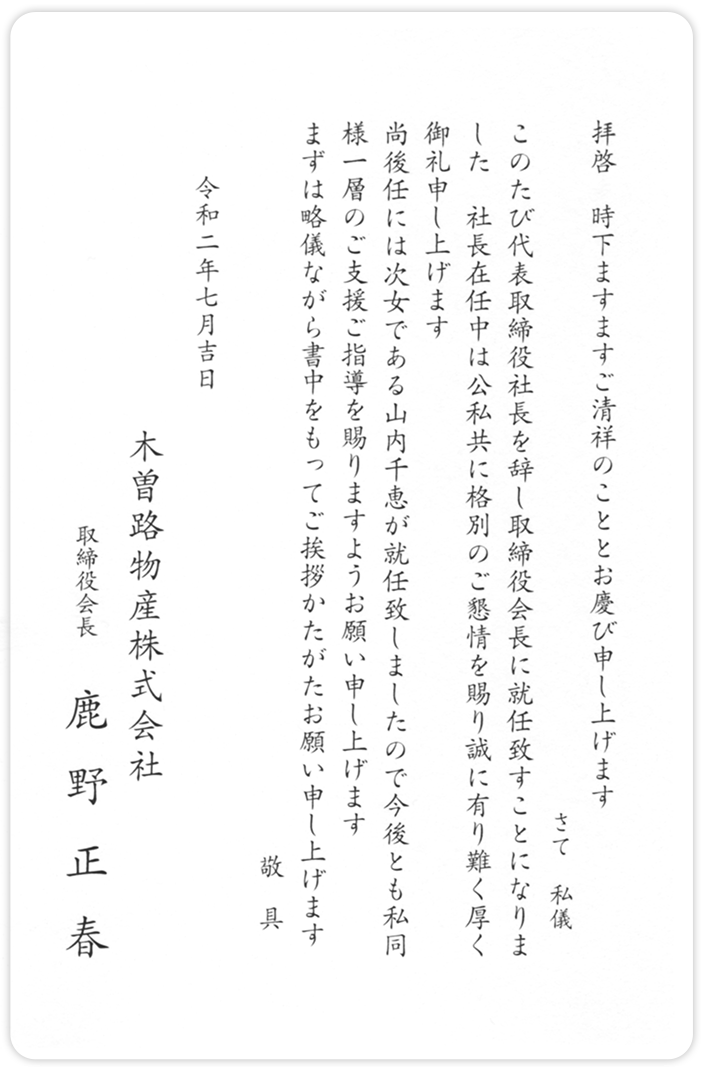 拝啓　時下ますますご清祥のこととお慶び申し上げます
さて　私儀
このたび代表取締役社長を辞し取締役会長に就任致すことになりま
した　社長在任中は公私共に格別のご懇情を賜り誠に有り難く厚く
御礼申し上げます
尚後任には次女である山内千恵が就任致しましたので今後とも私同
様一層のご支援ご指導を賜りますようお願い申し上げます
まずは略儀ながら書中をもってご挨拶かたがたお願い申し上げます
敬　具
令和二年七月吉日
木曽路物産株式会社
取締役会長　鹿野正春